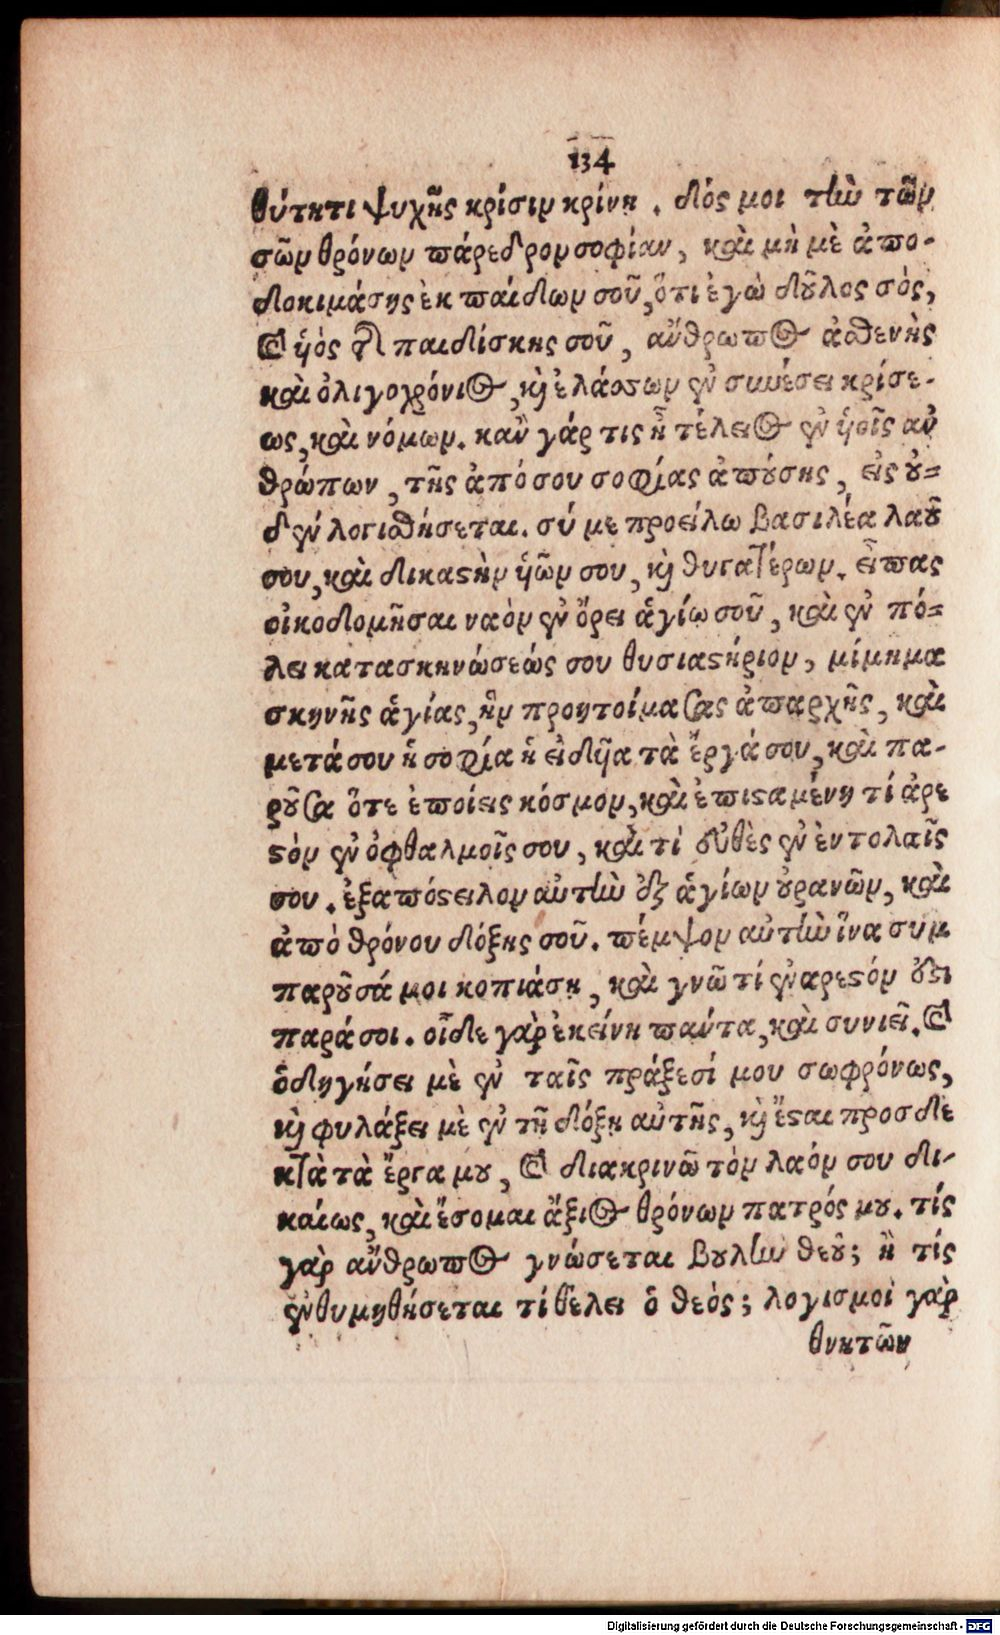 134
θύτητι ψυχῆς κρίσιν κρίνῃ . δός μοι τὴν τῶν
σῶν θρόνων πάρεδρον σοφίαν, καὶ μὴ μὲ ἀπο-
δοκιμάσῃς ἐκ παίδων σοῦ, ὅτι ἐγὼ δοῦλος σός,
καὶ ὑὸς τῆς παιδίσκης σοῦ, ἄνθρωπος ἀσθενὴς
καὶ ὀλιγοχρόνιος, καὶ ἐλάσσων ἐν συνέσει κρίσε-
ως, καὶ νόμων. κἂν γάρ τις ᾖ τέλειος ἐν ὑοῖς ἀν
θρώπων, τῆς ἀπό σου σοφίας ἀπούσης, εἰς οὐ=
δὲν λογισθήσεται. σύ με προείλω βασιλέα λαοῦ
σου, καὶ δικαστὴν ὑῶν σου, καὶ θυγατέρων. εἶπας
οἰκοδομῆσαι ναὸν ἐν ὄρει ἁγίῳ σοῦ, καὶ ἐν πό=
λει κατασκηνώσεώς σου θυσιαστήριον, μίμημα
σκηνῆς ἁγίας, ἣν προητοίμασας ἀπαρχῆς, καὶ
μετά σου ἡ σοφία ἡ εἰδῦα τὰ ἔργά σου, καὶ πα-
ροῦσα ὅτε ἐποίεις κόσμον, καὶ ἐπισταμένη τί ἀρε
στὸν ἐν ὀφθαλμοῖς σου, καὶ τὶ εὐθὲς ἐν ἐντολαῖς
σου . ἐξαπόστειλον αὐτὴν ἐξ ἁγίων οὐρανῶν, καὶ
ἀπὸ θρόνου δόξης σοῦ. πέμψον αὐτὴν ἵνα συμ
παροῦσά μοι κοπιάσῃ, καὶ γνῶ τί ἐναρεστόν ἐστι
παρά σοι. οἶδε γὰρ ἐκείνη πάντα, καὶ συνιεῖ. καὶ
ὁδηγήσει μὲ ἐν ταῖς πράξεσί μου σωφρόνως,
καὶ φυλάξει μὲ ἐν τῇ δόξῃ αὐτῆς, καὶ ἔσται προσδε
κτὰ τὰ ἔργα μου, καὶ διακρινῶ τὸν λαόν σου δι-
καίως, καὶ ἔσομαι ἄξιος θρόνων πατρός μου. τίς
γὰρ ἄνθρωπος γνώσεται βουλὴν θεοῦ; ἢ τίς
ἐνθυμηθήσεται τί θέλει ὁ θεὸς; λογισμοὶ γὰρ
θνητῶν
Digitalisierung gefördert durch die Deutsche Forschungsgemeinschaft - DFG